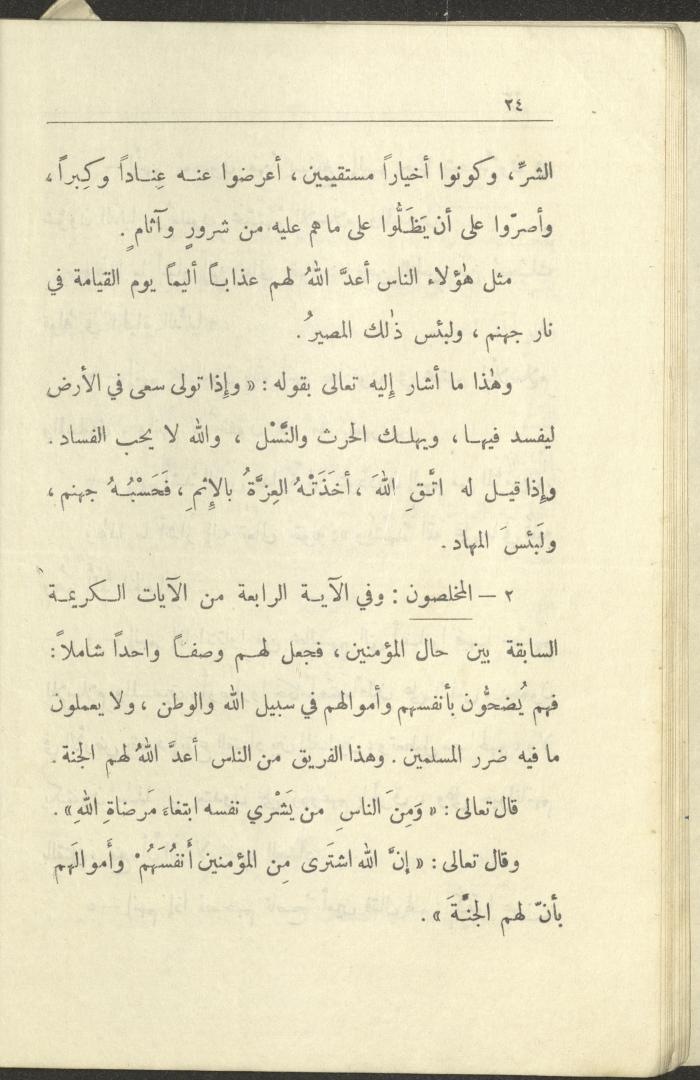 ٢٤
الشرِّ، وكونوا أخياراً مستقيمين، أعرضوا عنه عِناداً وكِبراً،
وأصرّوا على أن يَظَلُّوا على ما هم عليه من شرورٍ وآثامٍ.
مثل هٰؤلاء الناس أعدَّ اللهُ لهم عذاباً أليماً يوم القيامة في
نار جهنم، ولبئس ذٰلك المصيرُ.
وهٰذا ما أشار إليه تعالى بقوله: « وإذا تولى سعى في الأرض
ليفسد فيها، ويهلك الحرث والنَّسْل، والله لا يحب الفساد.
وإذا قيل له اتَّقِ اللهَ، أخَذَتْهُ العِزَّةُ بالإثمِ، فَحَسْبُهُ جهنم،
ولَبئسَ المهاد.
٢ – المخلصون: وفي الآية الرابعة من الآيات الكريمة
السابقة بين حال المؤمنين، فجعل لهم وصفاً واحداً شاملاً:
فهم يُضحُّون بأنفسهم وأموالهم في سبيل الله والوطن، ولا يعملون
ما فيه ضرر المسلمين. وهذا الفريق من الناس أعدَّ اللهُ لهم الجنة.
قال تعالى: « وَمِنَ الناسِ من يَشْري نفسه ابتغاءَ مَرضاةِ اللهِ ».
وقال تعالى: « إنَّ الله اشتَرى مِن المؤمنين أَنفُسَهُمْ وأَموالَهم
بأنّ لهم الجنَّةَ ».